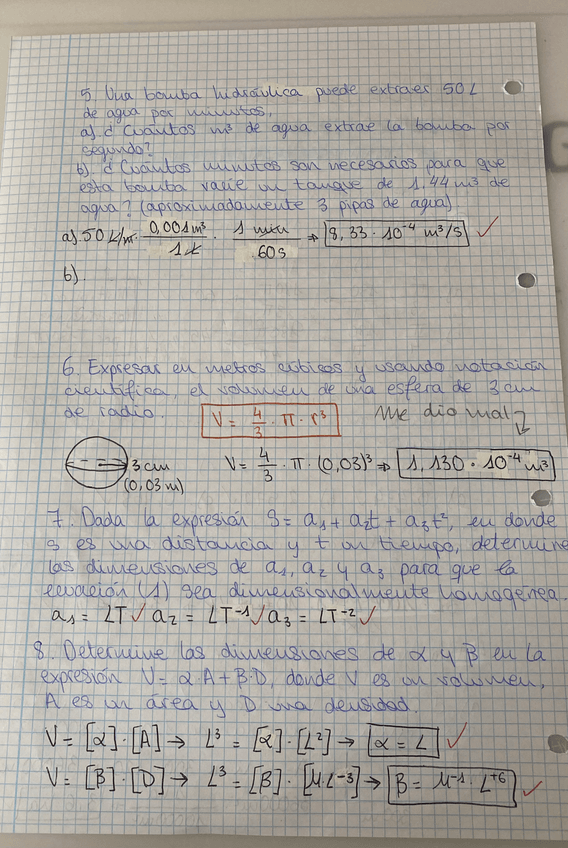 5. Una bomba hidráulica puede extraer 50 L
de agua por minutos,
a) ¿Cuántos m³ de agua extrae la bomba por
segundo?
b). ¿Cuántos minutos son necesarios para que
esta bomba vacíe un tanque de 1,44 m³ de
agua? (aproximadamente 3 pipas de agua)
a). 50 L/m · 0,001 m³ / 1 L · 1 min / 60 s ⇒ 8,33 · 10⁻⁴ m³/s ✓
b).
6. Expresar en metros cúbicos y usando notación
científica, el volumen de una esfera de 3 cm
de radio. V = 4/3 · π · r³ Me dio mal?
3 cm V = 4/3 · π · (0,03)³ ⇒ 1,130 · 10⁻⁴ m³
(0,03 m)
7. Dada la expresión S = a₁ + a₂t + a₃t², en donde
s es una distancia y t un tiempo, determine
las dimensiones de a₁, a₂ y a₃ para que la
ecuación (1) sea dimensionalmente homogénea.
a₁ = LT ✓ a₂ = LT⁻¹ ✓ a₃ = LT⁻² ✓
8. Determine las dimensiones de α y β en la
expresión V = α·A + B·D, donde V es un volumen,
A es un área y D una densidad.
V = [α]·[A] → L³ = [α]·[L²] → α = L ✓
V = [B]·[D] → L³ = [B]·[M·L⁻³] → B = M⁻¹·L⁺⁶ ✓